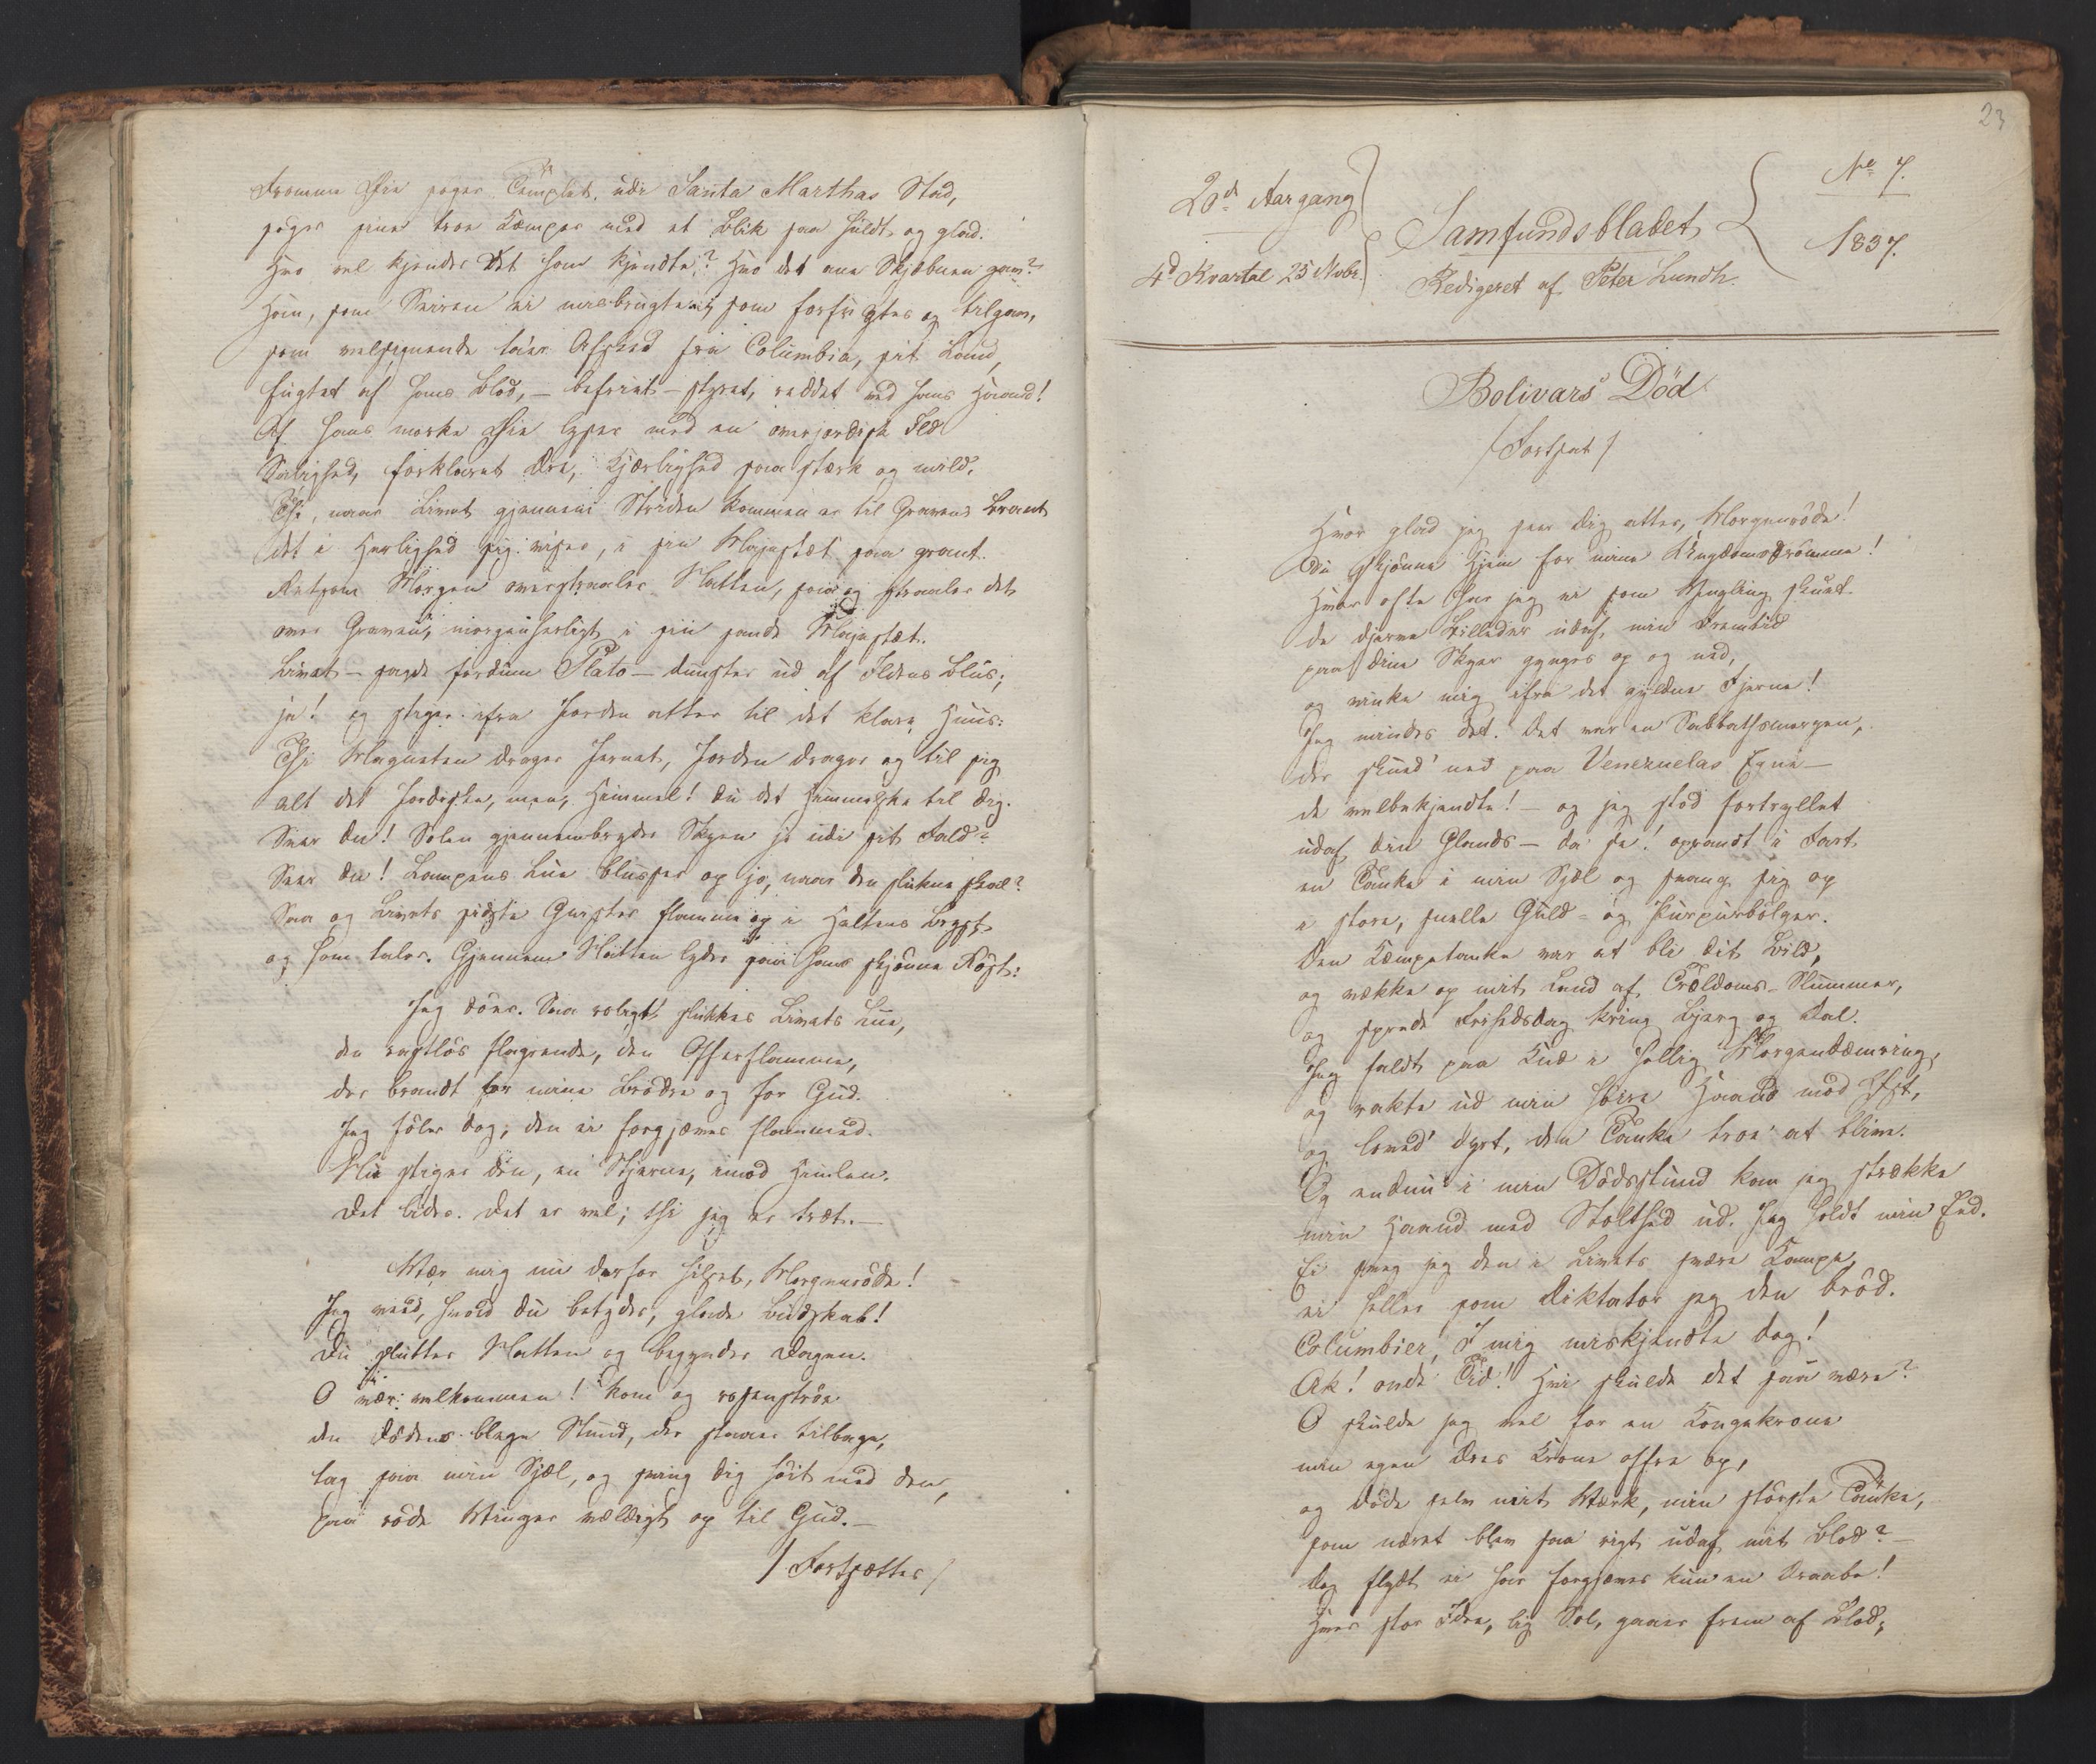 Fromme Øie søger Templet udi Santa Marthas Stad,
søger sine troe Kæmper med et Blik saa huldt og glad.
Hvo vel kjender Det ham kjendte? Hvo det ene Skjæbnen gav?
Ham, som Seiren ei misbrugte, som forfulgtes og tilgav,
som velsignende taer Afsked fra Columbia, sit Land,
fugtet af hans Blod, – befriet – styret, reddet ved hans Haand!
Af hans mørke Øie lyser med en overjordisk Ild
Salighed, forklaret Ære, Kjærlighed saa stærk og mild.
Thi, naar Livet gjennem Striden kommen er til Gravens Brant
det i Herlighed sig viser, i sin Majestæt saa grant.
Retsom Morgen overstraaler Natten, saa og straaler det
over Graven, morgenherligt i sin sande Majestæt.
Livet – sagde fordum Plato – dunster ud af Ildens Blus;
ja! og stiger ifra Jorden atter til det klare Huus:
Thi Magneten drager Jernet, Jorden drager og til sig
alt det Jordiske, men, Himmel! du det Himmelske til dig.
Seer du! Solen gjennembryder Skyen jo udi sit Fald?
Seer du! Lampens Lue blusser op jo, naar den slukne skal?
Saa og Livets sidste Gnister flamme op i Heltens Bryst,
og han taler. Gjennem Natten lyder saa hans skjønne Røst:
Jeg døer. Saa roligt slukkes Livets Lue,
den rastløs flagrende, den Offerflamme,
der brandt for mine Brødre og for Gud.
Jeg føler dog, den ei forgjæves flammed.
Nu stiger den, en Stjerne, imod Himlen.
Det lider. Det er vel; thi jeg er træt. –
Vær mig nu derfor hilset, Morgenrøde!
Jeg veed, hvad du betyder, glade Budskab!
Du slutter Natten og begynder Dagen.
O vær velkommen! kom og rosenstrøe
den Dødens blege Stund, der staaer tilbage,
tag saa min Sjæl, og sving dig høit med den,
paa røde Vinger vældigt op til Gud. –
/ Fortsættes /
23
2d Aargang
4d Kvartal 25 Novbr.
Samfundsbladet
Redigeret af Peter Lundh.
No 7.
1837.
Bolivars Død
/ Fortsat /
Hvor glad jeg seer dig atter, Morgenrøde!
Du skjønne Hjem for mine Ungdomsdrømme!
Hvor ofte har jeg ei som Yngling skuet
de djerve Billeder udaf min Fremtid
paa dine Skyer gynges op og ned,
og vinke mig ifra det gyldne Fjerne!
Jeg mindes det. Det var en Sabbathsmorgen,
der skued' ned paa Venezuelas Egne –
de velbekjendte! – og jeg stod fortryllet
udaf din Glands – da se! oprandt i Fart
en Tanke i min Sjæl og svang sig op
i store, snelle Guld- og Purpurbølger.
Den Kæmpetanke var at bli dit Bild,
og vække op mit Land af Trældoms-Slummer,
og sprede Frihedsdag kring Bjerg og Dal.
Jeg faldt paa Knæ i hellig Morgendæmring,
og rakte ud min høire Haand mod Øst,
og loved' dyrt, den Tanke tro' at blive.
Og endnu i min Dødsstund kan jeg strække
min Haand med Stolthed ud. Jeg holdt min Eed.
Ei sveg jeg den i Livets svære Kampe,
ei heller som Diktator jeg den brød.
Columbier, I mig miskjendte dog!
Ak! onde Tid! Hvi skulde det saa være?
O skulde jeg vel for en Kongekrone
min egen Æres Krone offre op,
og døde selv mit Værk, min største Tanke,
som næret blev saa rigt udaf mit Blod? –
Dog flydt ei har forgjæves kun en Draabe!
Hver stor Idee, lig Sol, gaaer frem af Blod;